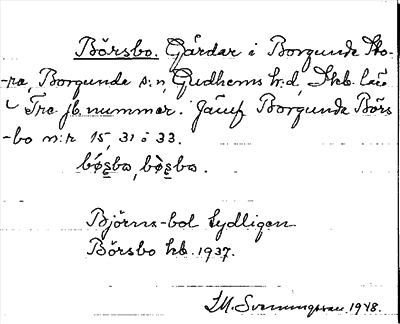 Börsbo. Gårdar i Borgunda Sko-
ra, Borgunda s:n, Gudhems h:d, Skb. län
Tre jb. nummer. Jämf Borgunda Börs
-bo n:r 15, 31 o 33.
bǿsbo, bǿsbo.
Björns-bol tydligen
Börsbo kb. 1937.
I.M. Svenungsson. 1948.